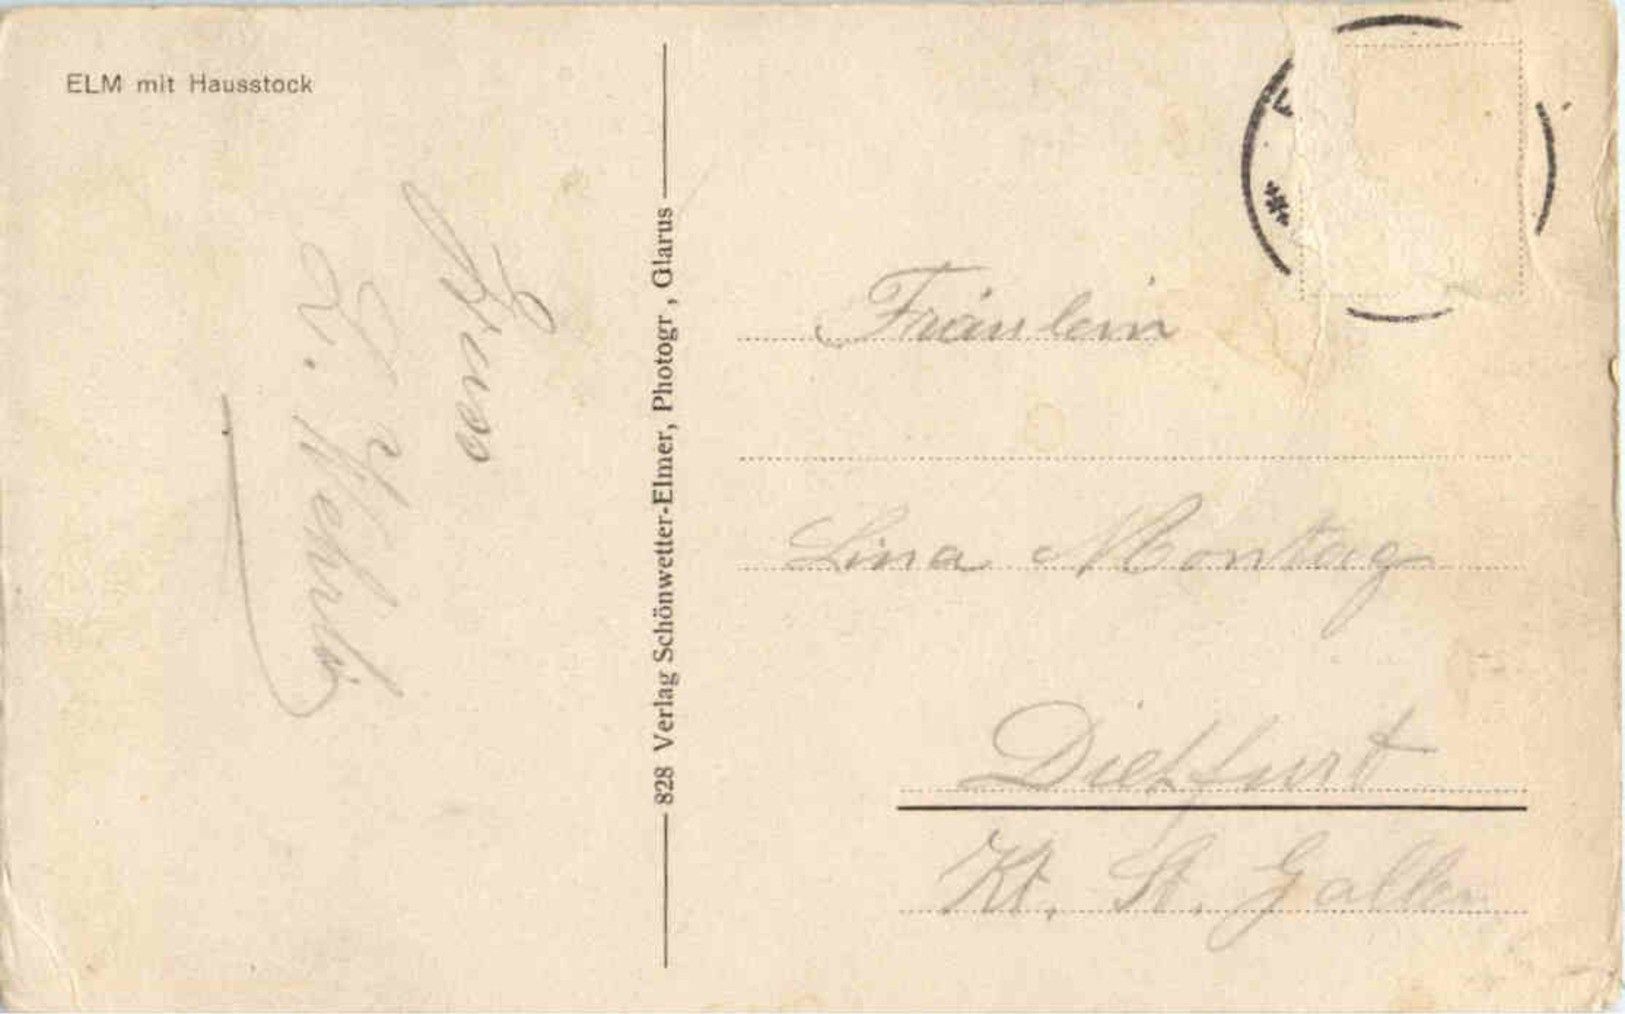 ELM mit Hausstock
Gruss
L. Wehrli
828 Verlag Schönwetter-Elmer, Photogr., Glarus
Fräulein
Lina Montag
Dietfurt
Kt. St. Gallen